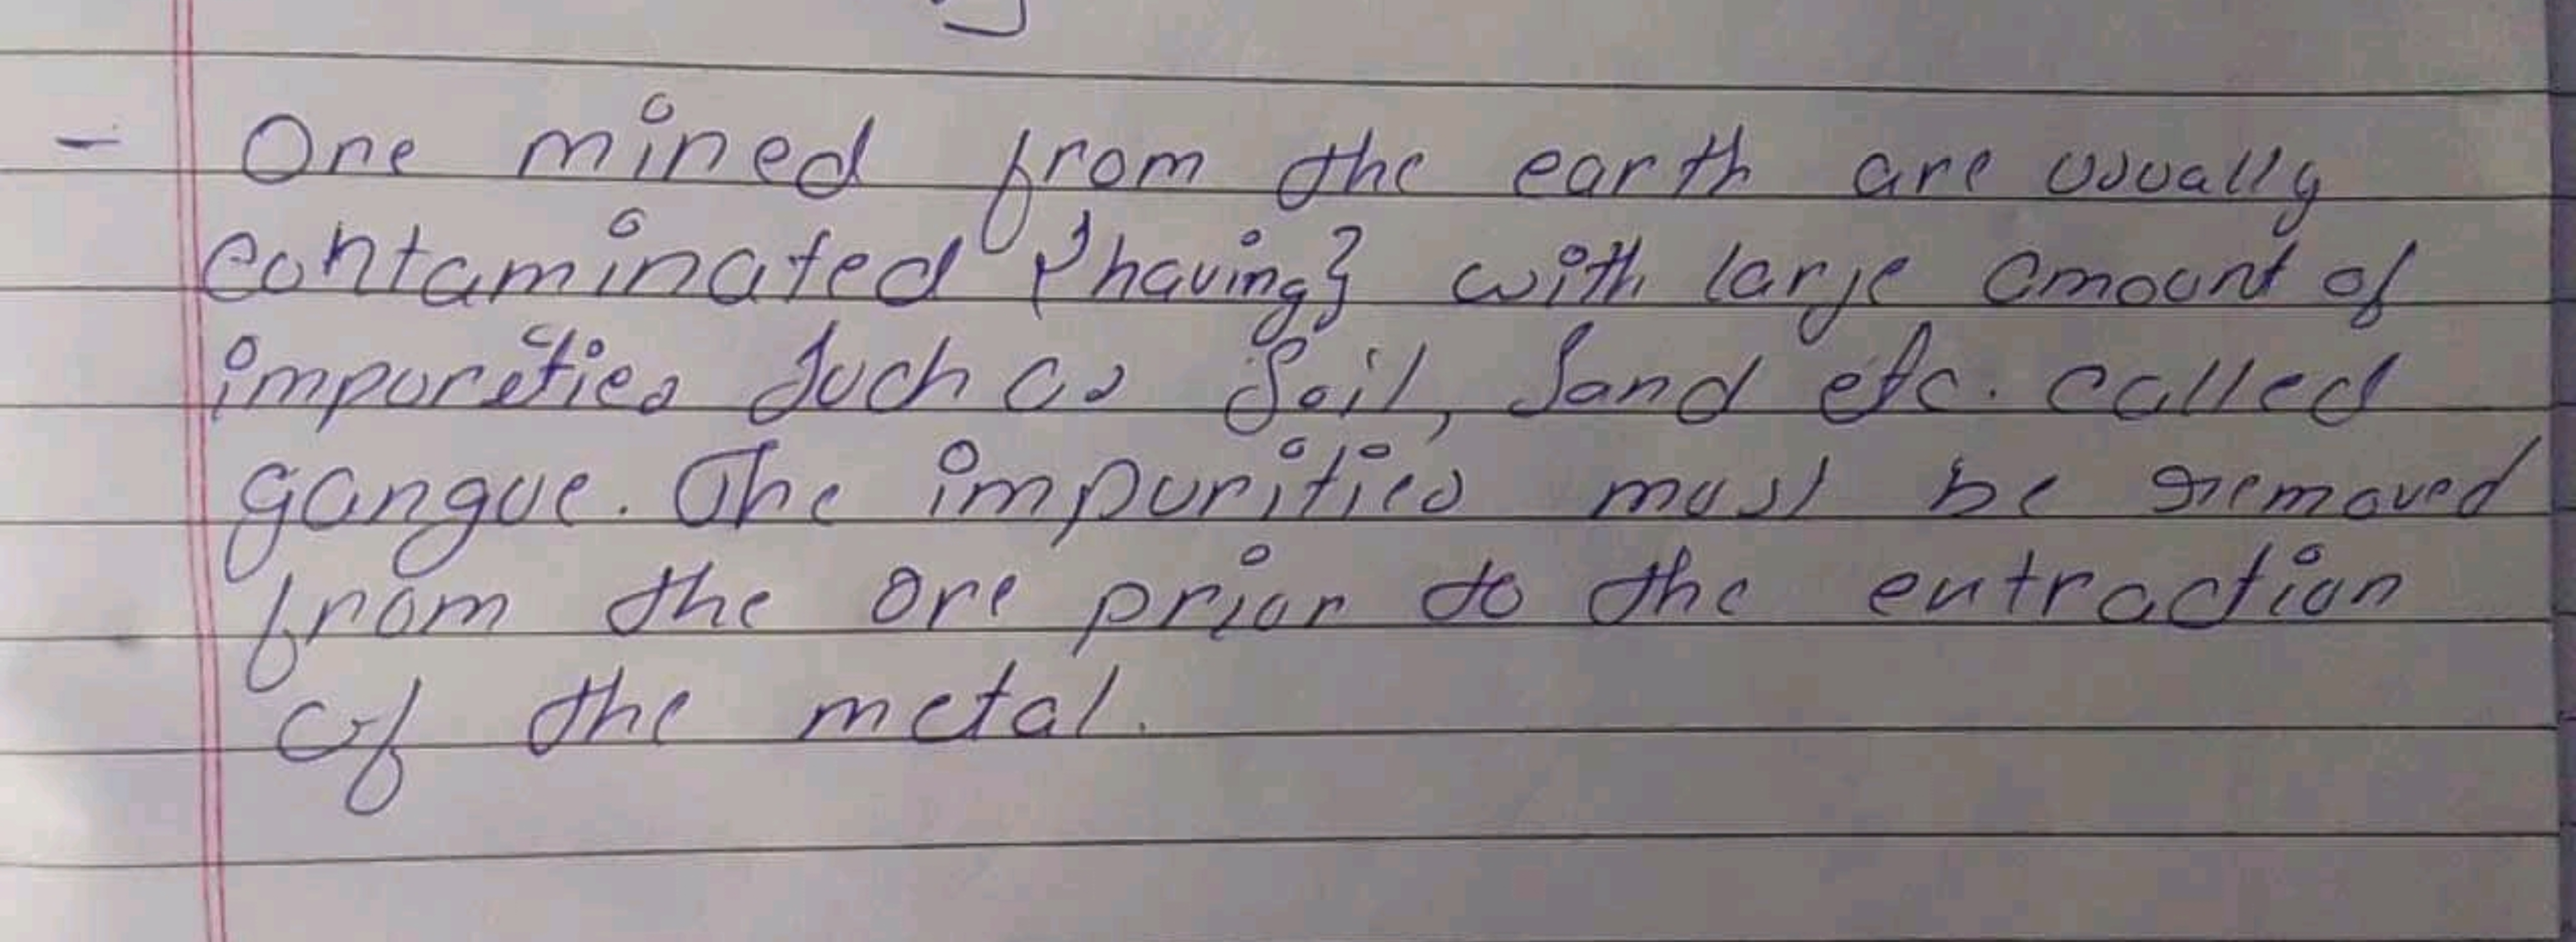 - Ore mined from the earth are usually
contaminated {having} with large amount of
impurities such as soil, sand etc. called
gangue. The impurities must be removed
from the ore prior to the extraction
of the metal.